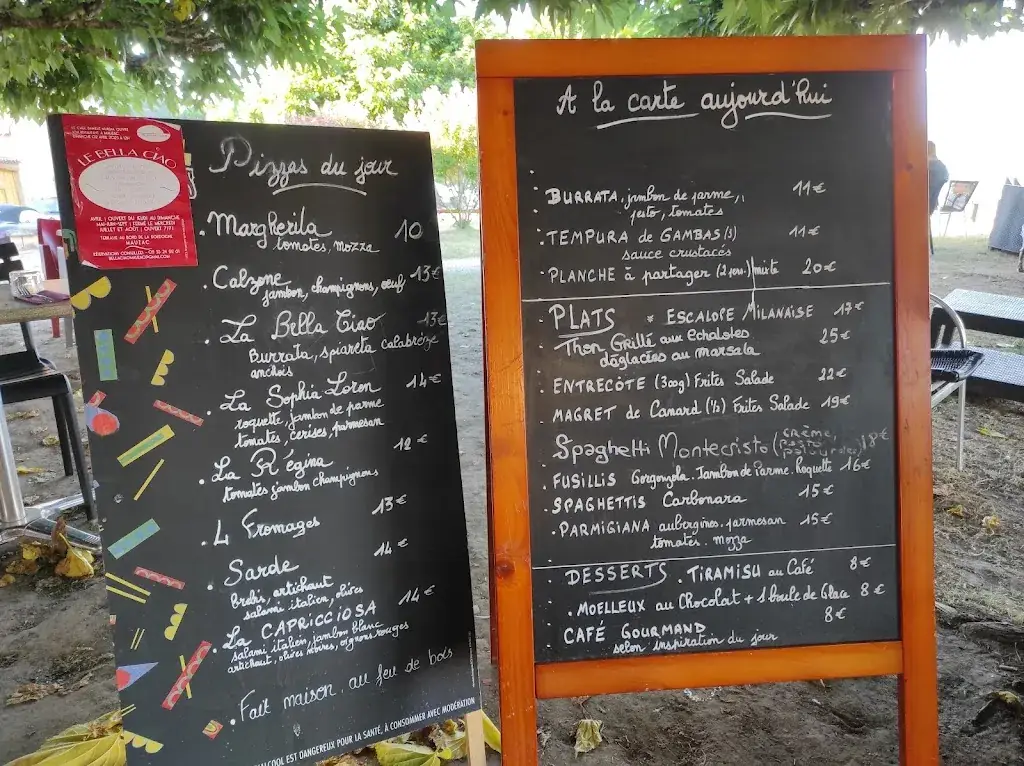 LE BELLA CIAO
AVRIL | OUVERT DU JEUDI AU DIMANCHE
MAI/JUIN/SEPT | FERMÉ LE MERCREDI
JUILLET ET AOÛT | OUVERT 7/7J
TERRASSE AU BORD DE LA DORDOGNE
MAUZAC
Pizzas du jour
Margherita 10
tomates, mozza
Calzone 13€
jambon, champignons, oeuf
La Bella Ciao 13€
Burrata, spianata calabrèze
anchois
La Sophia Loren 14€
roquette, jambon de parme
tomates, cerises, parmesan
La Régina 12€
tomates jambon champignons
4 Fromages 13€
Sarde 14€
brebis, artichaut
salami italien, olives
La CAPRICCIOSA 14€
salami italien, jambon blanc
artichaut, olives noires, oignons rouges
Fait maison, au feu de bois
ALCOOL EST DANGEREUX POUR LA SANTÉ, À CONSOMMER AVEC MODÉRATION
A la carte aujourd'hui
BURRATA, jambon de parme, 11€
pesto, tomates
TEMPURA de GAMBAS(5) 11€
sauce crustacés
PLANCHE à partager (2 pers.) mixte 20€
PLATS ESCALOPE MILANAISE 17€
Thon Grillé aux Echalotes 25€
déglacées au marsala
ENTRECÔTE (300g) Frites Salade 22€
MAGRET de Canard (½) Frites Salade 19€
Spaghetti Montecristo (CRÈME, 18€
FUSILLIS Gorgonzola. Jambon de Parme. Roquette 16€
SPAGHETTIS Carbonara 15€
PARMIGIANA aubergines. parmesan 15€
tomates. mozza
DESSERTS. TIRAMISU au Café 8€
MOELLEUX au Chocolat + 1 boule de Glace 8€
CAFÉ GOURMAND 8€
selon inspiration du jour